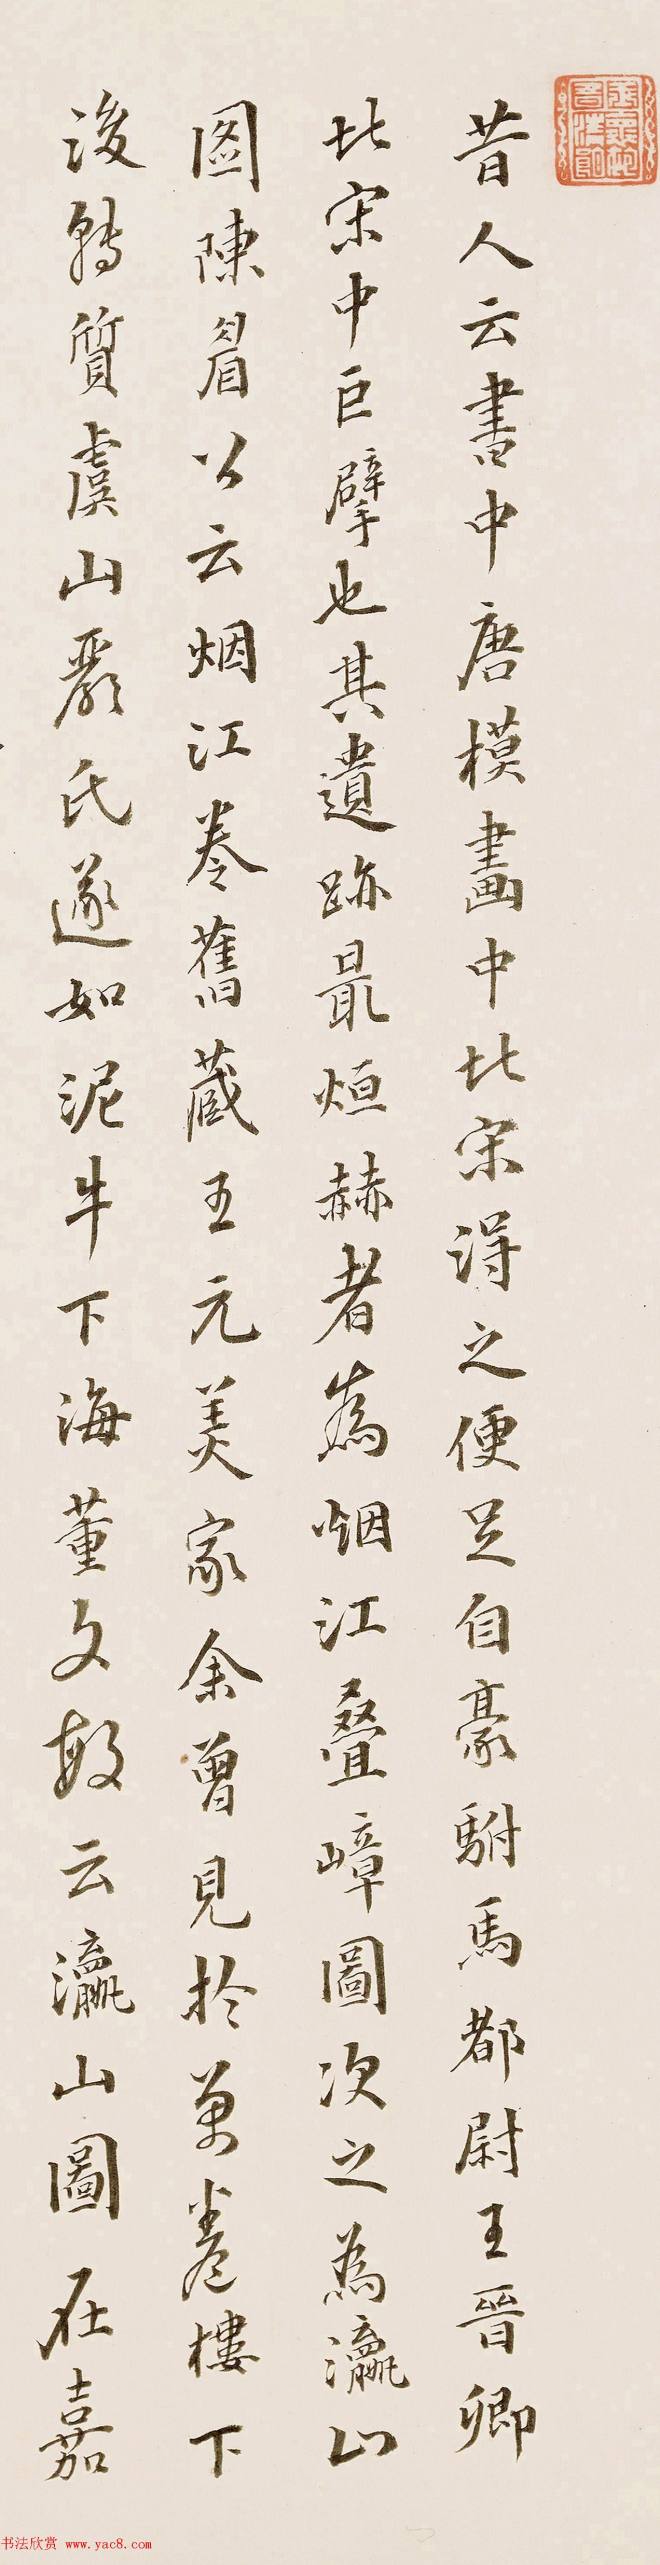 昔人云書中唐模畫中北宋得之便足自豪駙馬都尉王晉卿
北宋中巨擘也其遺跡最烜赫者為烟江疊嶂圖次之為瀛山
圖陳眉公云烟江卷舊藏王元美家余曾見於萬卷樓下
後轉質虞山嚴氏遂如泥牛下海董文敏云瀛山圖在嘉
书法欣赏 www.yac8.com